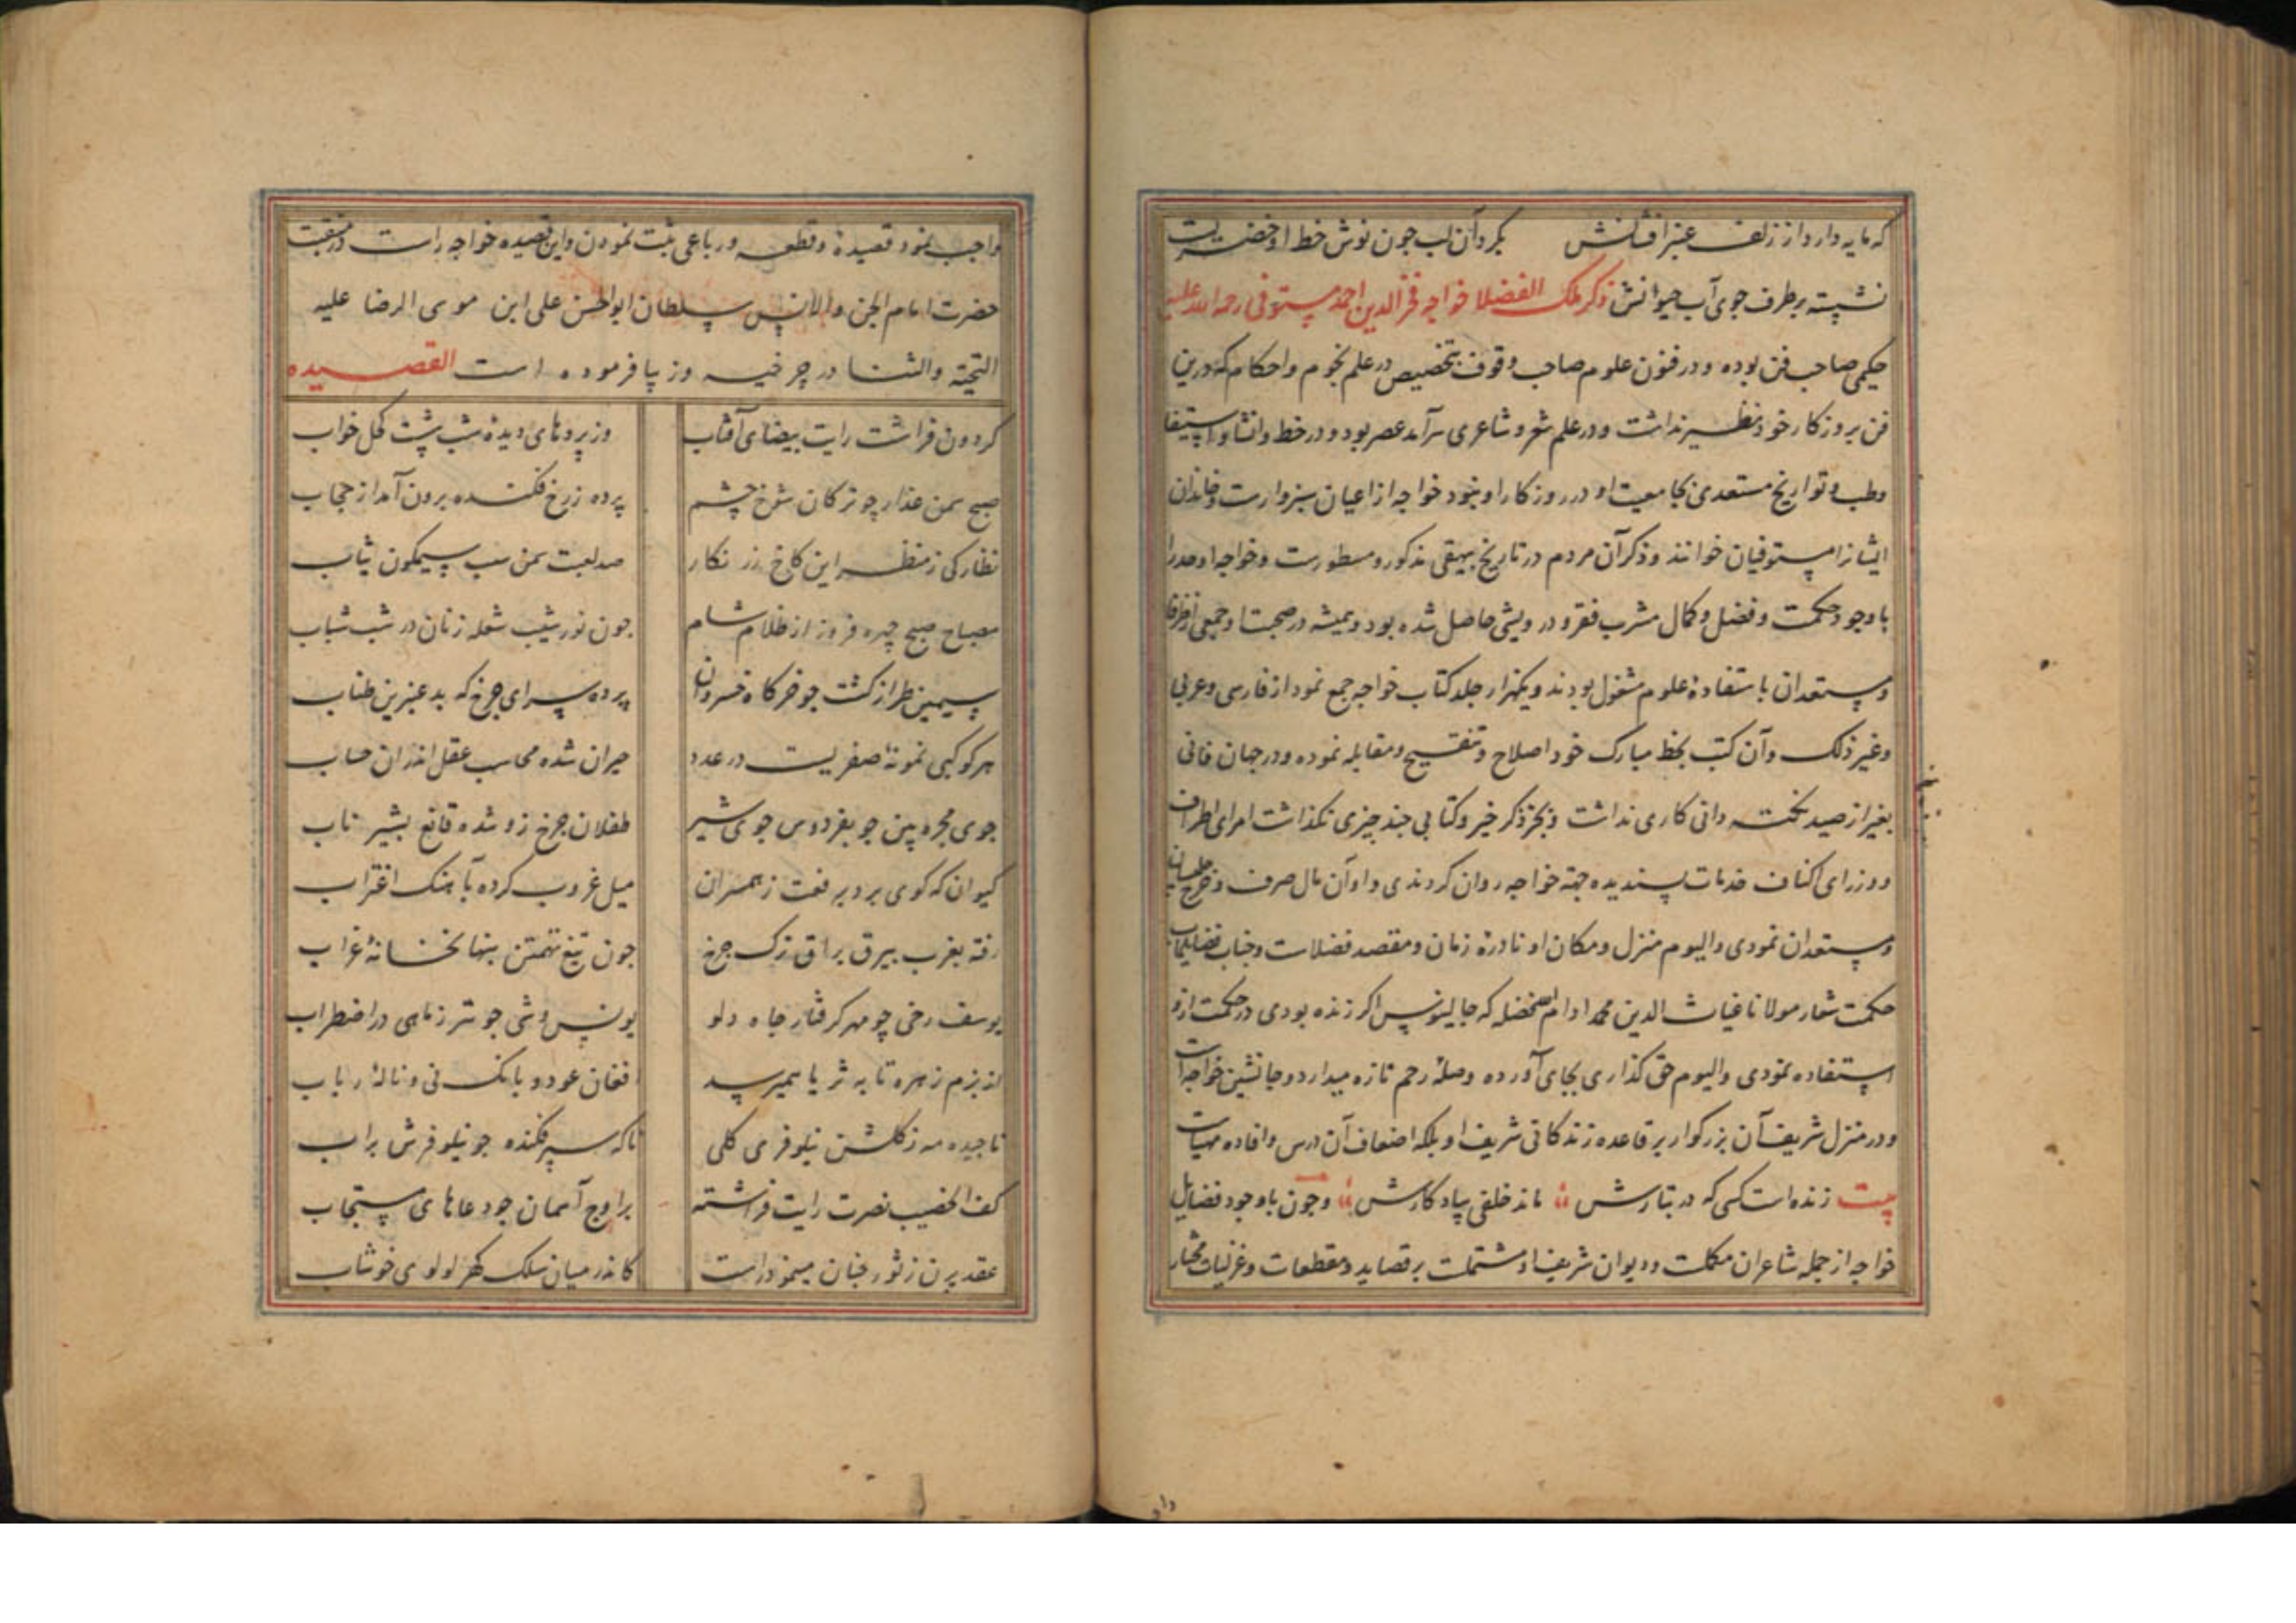 که مایه دارد از زلف عنبرافشانش بگرد آن لب چون نوش خط او خضریست
نشسته بر طرف جوی آب حیوانش ذکر ملک الفضلا خواجه فخرالدین احمد مستوفی رحمه الله علیه
حکیمی صاحب فن بوده و در فنون علوم صاحب وقوف بتخصیص در علم نجوم و احکام که درین
فن بروزکار خود نظیر نداشت و در علم شعر و شاعری سرآمد عصر بود و در خط و انشا و استیفا
و طب و تواریخ مستعدی بجامعیت او در روزکار او نبود خواجه از اعیان سبزوارست و خاندان
ایشانرا مستوفیان خوانند و ذکر آن مردم در تاریخ بیهقی مذکور و مسطورست و خواجه اوحد را
با وجود حکمت و فضل و کمال مشرب فقر و درویشی حاصل شده بود و همیشه در صحبت او جمعی از ظرفا
و مستعدان باستفادهٔ علوم مشغول بودند و یکهزار جلد کتاب خواجه جمع نمود از فارسی و عربی
و غیر ذلک و آن کتب بخط مبارک خود اصلاح و تنقیح و مقابله نموده و در جهان فانی
بغیر از صید نکته دانی کاری نداشت و بجز ذکر خیر و کتابی چند چیزی نکذاشت امرای اطراف
و وزرای اکناف خدمات پسندیده جهة خواجه روان کردندی و او آن مال صرف و خرج جلیسان
و مستعدان نمودی و الیوم منزل و مکان او نادرهٔ زمان و مقصد فضلاست و جناب فضایلمآب
حکمت شعار مولانا غیاث الدین محمد ادام الله فضله که جالینوس اکر زنده بودی در حکمت ازو
استفاده نمودی و الیوم حق کذاری بجای آورده وصلهٔ رحم تازه میدارد و جانشین خواجه است
و در منزل شریف آن بزرکوار بر قاعده زندکانی شریف او بلکه اضعاف آن درس و افاده مهیاست
بیت زنده است کسی که در تبارش ماند خلفی بیادکارش و چون با وجود فضایل
خواجه از جمله شاعران مکملست و دیوان شریف او مشتملست بر قصاید و مقطعات و غزلیات مختار
واجب نمود قصیدهٔ و قطعه و رباعی ثبت نمودن و این قصیده خواجه راست در منقبت
حضرت امام الجن والانس سلطان ابوالحسن علی ابن موسی الرضا علیه
التحیة والثنا در چرخیه وز پا فرموده است القصیده
کردون فراشت رایت بیضای آفتاب وز پردهای دیدهٔ شب شست کحل خواب
صبح سمن عذار چو ترکان شوخ چشم پرده ز رخ فکنده برون آمد از حجاب
نظارکی ز منظر این کاخ زر نکار صد لعبت سمن سلب سیمکون ثیاب
مصباح صبح چهره فروز از ظلام شام چون نور شیب شعله زنان در شب شباب
سیمین طراز کشت چو خرکاه خسروان پرده سرای چرخ که بد عنبرین طناب
هر کوکبی نمونهٔ صفریست در عدد حیران شده محاسب عقل اندران حساب
جوی مجره بین چو بفردوس جوی شیر طفلان چرخ زو شده قانع بشیر ناب
کیوان که کوی برد برفعت ز همسران میل غروب کرده بآهنک اغتراب
رفته بغرب بیرق براق ترک چرخ چون تیغ تهمتن بنهانخانهٔ غراب
یوسف رخی چو مهر کرفتار چاه دلو یونس وشی چو تیر ز ماهی در اضطراب
از بزم زهره تا به ثریا همیرسد افغان عود و بانک نی و نالهٔ رباب
ناچیده مه ز کلشن نیلوفری کلی ناکه سپر فکنده چو نیلوفرش بر آب
کف الخضیب نصرت رایت فراشته بر اوج آسمان چو دعاهای مستجاب
عقد پرن ز ثور چنان مینمود راست کاندر میان سلک کهر لولوی خوشاب